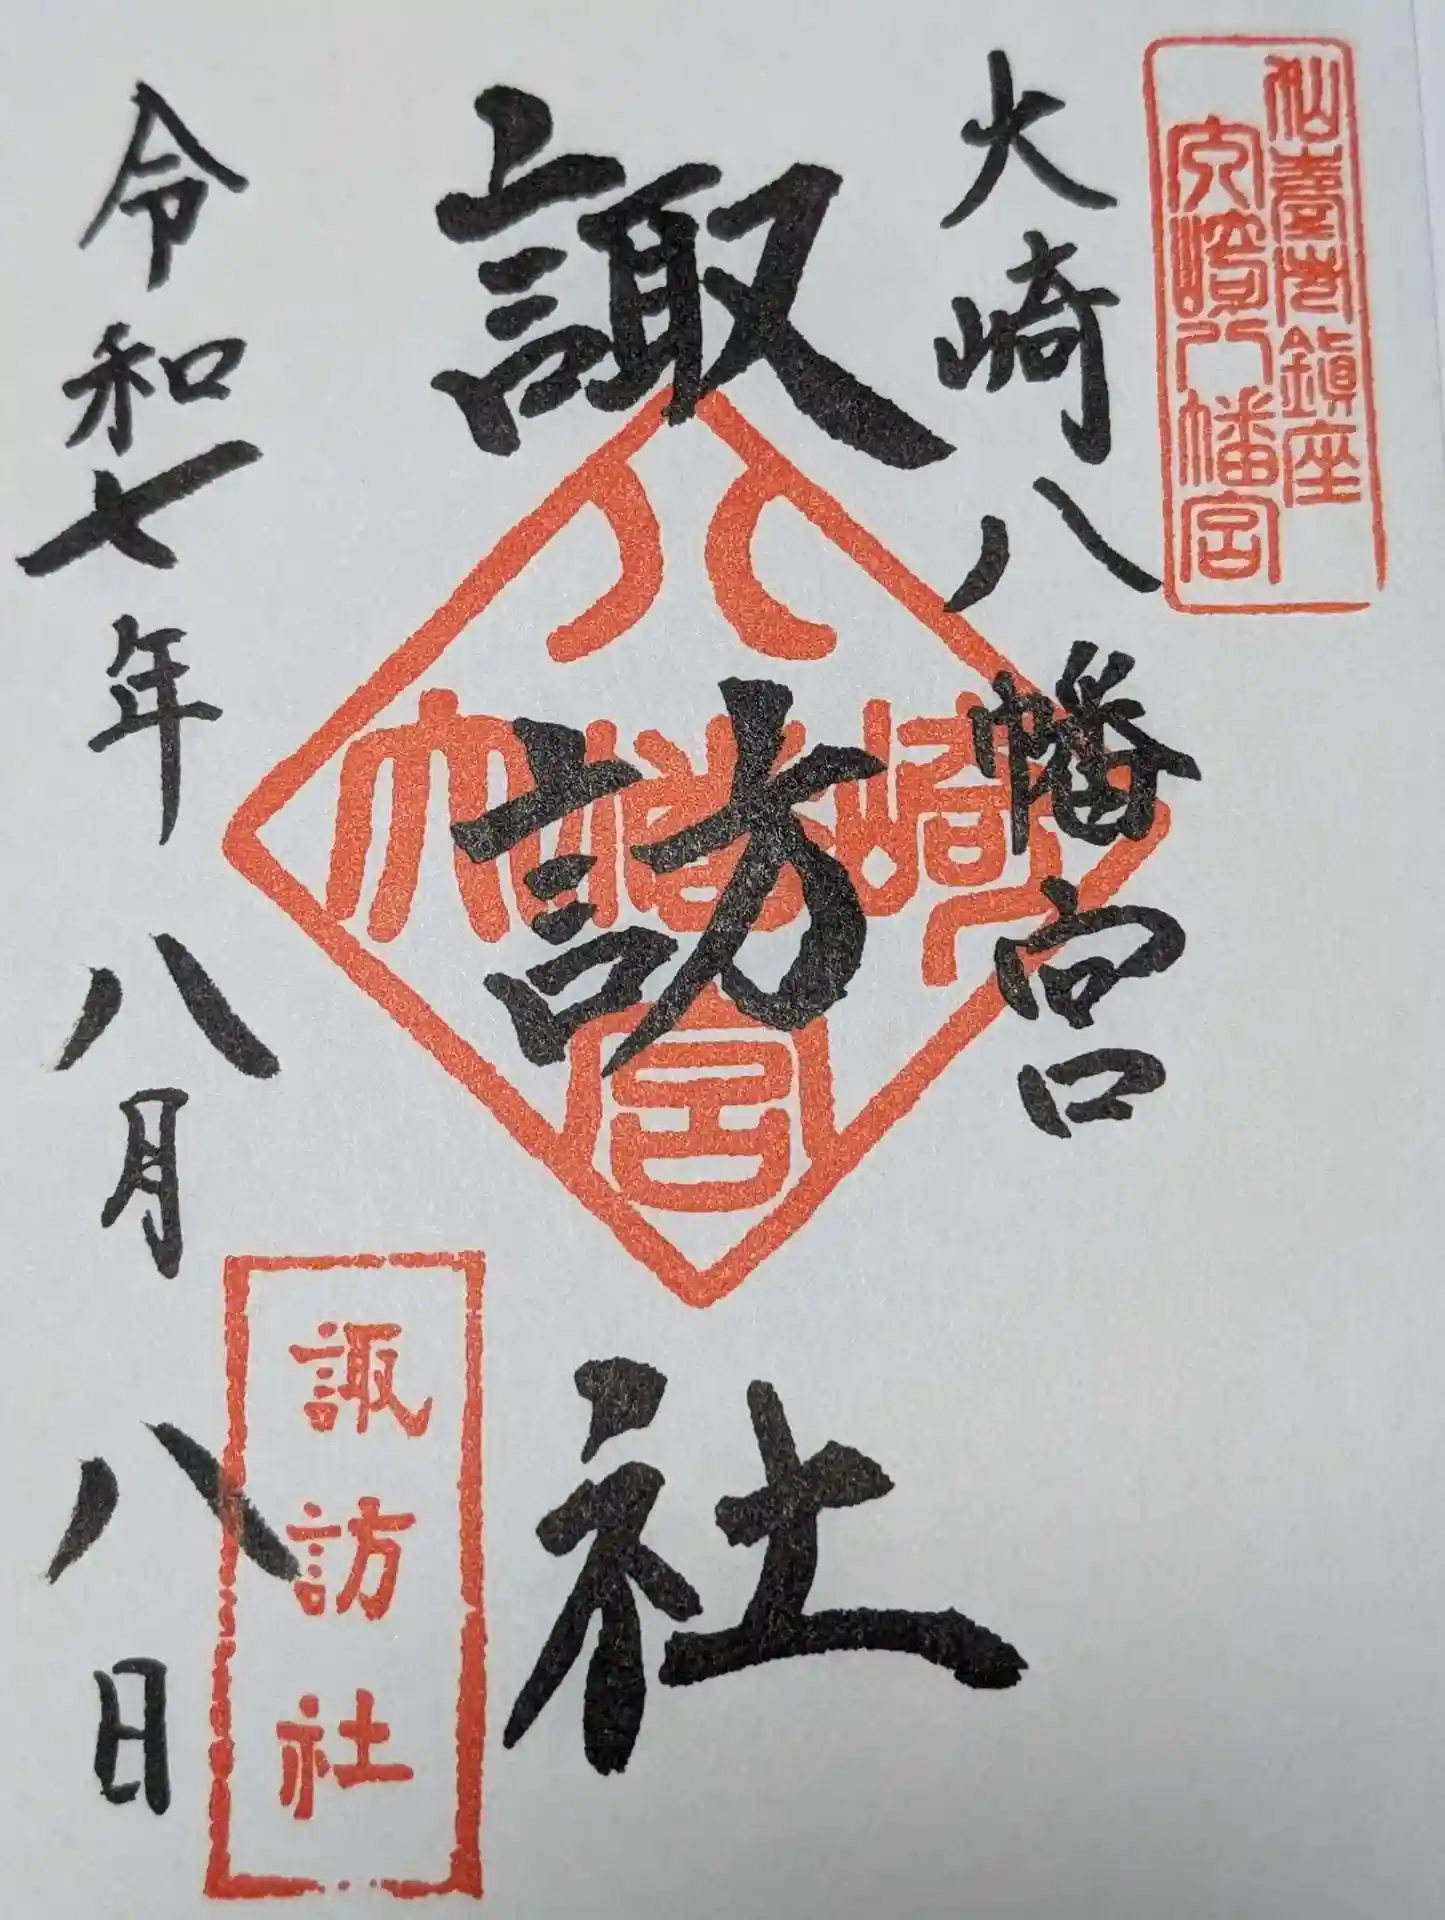 仙臺市鎮座
大崎八幡宮
大崎八幡宮
諏訪社
八
大幡崎
宮
令和七年八月八日
諏訪社